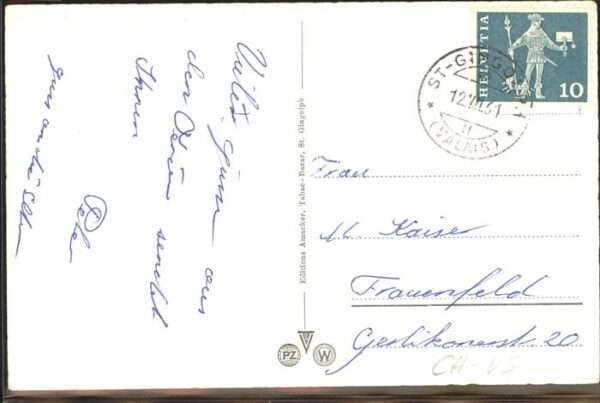 Viele Grüsse aus
den Ferien sendet
Ihnen
Peter
Editions Amacker, Tabac-Bazar, St. Gingolph
PZ
W
HELVETIA
10
ST-GINGOLPH 1
(VALAIS)
Frau
M. Kaiser
Frauenfeld
Gerlikonerstr. 20
CH-VS